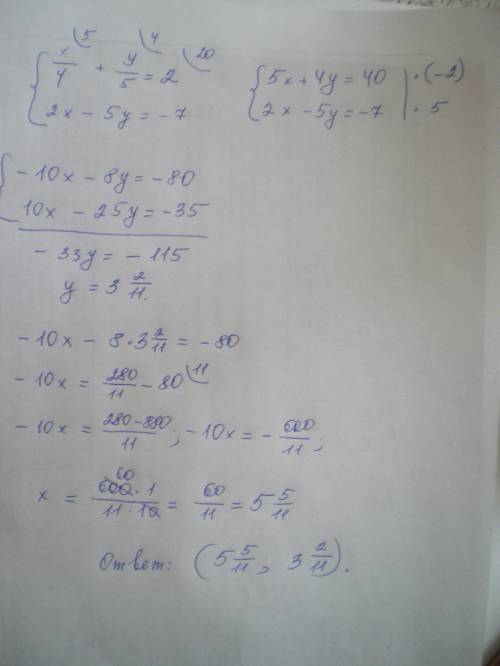 { x/4 ⌣5 + y/5 ⌣4 = 2 ⌣20
2x - 5y = -7
{ 5x + 4y = 40 | · (-2)
2x - 5y = -7 | · 5
{ -10x - 8y = -80
10x - 25y = -35
-33y = -115
y = 3 2/11.
-10x - 8 · 3 2/11 = -80
-10x = 280/11 - 80 ⌣11
-10x = 280-880/11 ; -10x = - 600/11 ;
x = 600 60 · 1/11 · 10 = 60/11 = 5 5/11
Ответ: (5 5/11 ; 3 2/11).